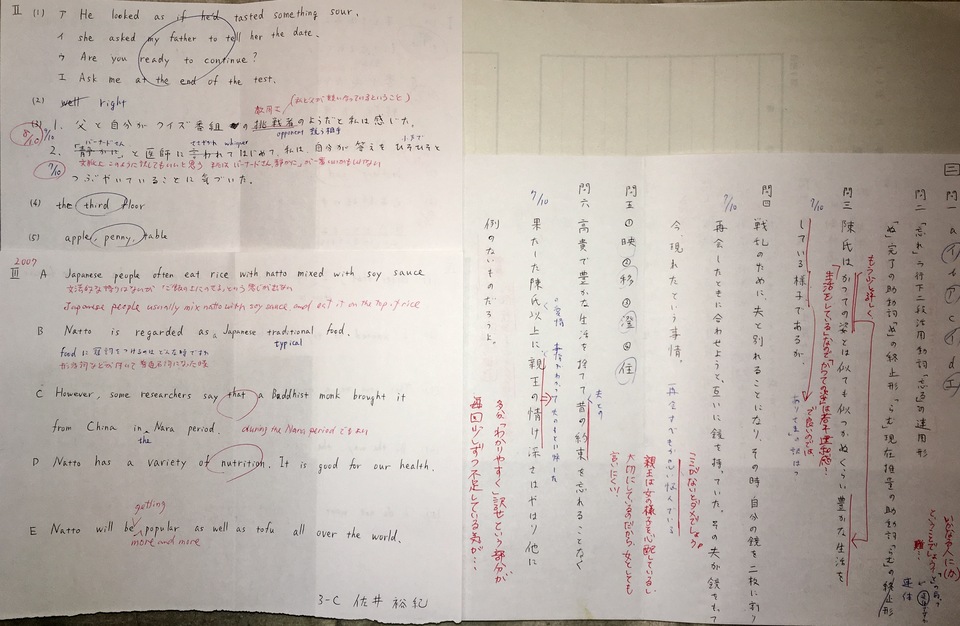 II (1) ア He looked as if he'd tasted something sour.
イ she asked my father to tell her the date.
ウ Are you ready to continue?
エ Ask me at the end of the test.
(2) well right
(3) 1. 父と自分がクイズ番組の挑戦者のようだと私は感じた。
8/10 9/10
opponent 競う相手
2. 「静かに」と医師に言われてはじめて、私は、自分が答えをひそひそと
バーナードさん whisper
7/10
つぶやいていることに気づいた。
(4) the third floor
(5) apple, penny, table
III 2007
A Japanese people often eat rice with natto mixed with soy sauce
Japanese people usually mix natto with soy sauce, and eat it on the top of rice
B Natto is regarded as a Japanese traditional food.
typical
C However, some researchers say that a Buddhist monk brought it
from China in the Nara period.
during the Nara period でもよい
D Natto has a variety of nutrition. It is good for our health.
getting
E Natto will be popular as well as tofu all over the world.
more and more
3-C 佐井 裕紀
二
問一 a イ b ア c イ d エ
問二 「忘れ」ラ行下二段活用動詞「忘る」の連用形
「ぬ」完了の助動詞「ぬ」の終止形 「らむ」現在推量の助動詞「らむ」の終止形
連体
もう少し詳しく
問三 陳氏はかつての姿とは似ても似つかぬくらい豊かな生活を
している様子であるが、
7/10
問四 戦乱のために、夫と別れることになり、その時、自分の鏡を二枚に割り
再会したときに合わせようと、互いに鏡を持っていた。その夫が鏡をもって
7/10
今、現れたという事情。
ここがないとダメでしょう!
親王は女の様子を心配している
大切にしているだから、女としても
言いにくい!
問五 ①映 ②移 ③澄 ④住
問六 高貴で豊かな生活を捨てて昔の約束を忘れることなく
夫との
果たした陳氏以上に親王の情け深さはやはり他に
7/10
例のないものだろうよ。
多分「わかりやすく」訳せという部分が
毎回少しずつ不足している為が…